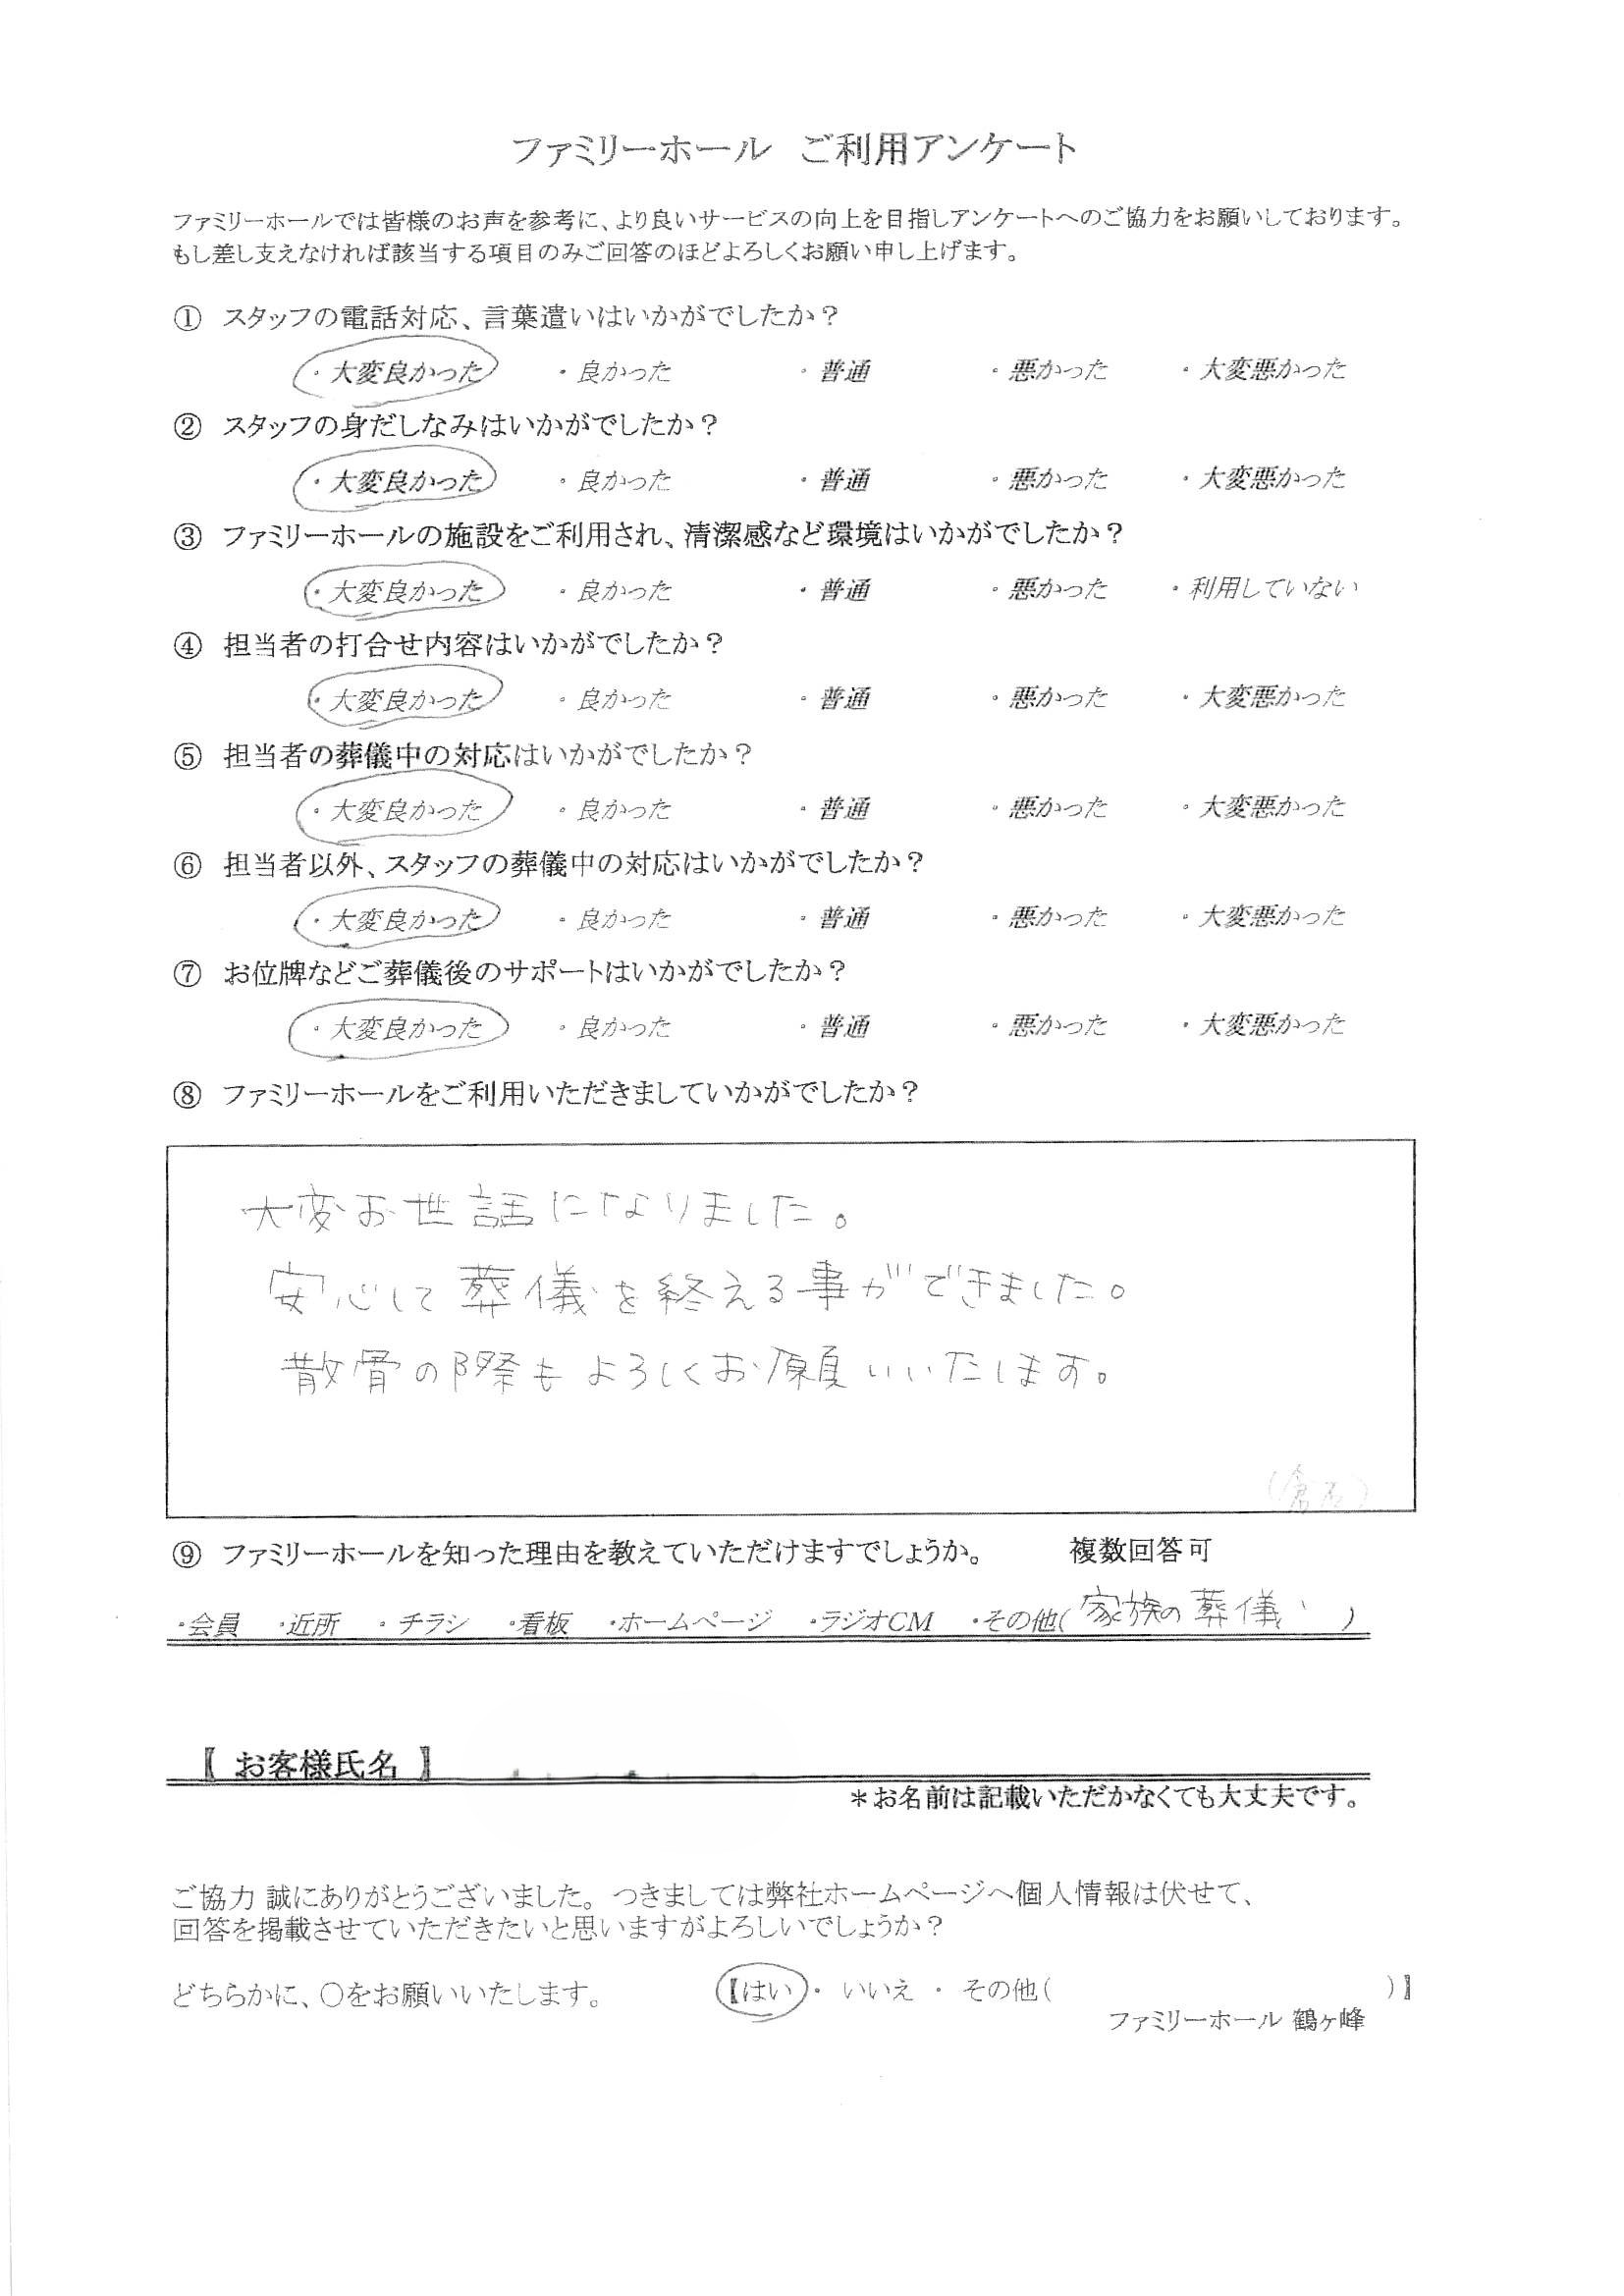 ファミリーホール ご利用アンケート
ファミリーホールでは皆様のお声を参考に、より良いサービスの向上を目指しアンケートへのご協力をお願いしております。
もし差し支えなければ該当する項目のみご回答のほどよろしくお願い申し上げます。
① スタッフの電話対応、言葉遣いはいかがでしたか？
・大変良かった ・良かった ・普通 ・悪かった ・大変悪かった
② スタッフの身だしなみはいかがでしたか？
・大変良かった ・良かった ・普通 ・悪かった ・大変悪かった
③ ファミリーホールの施設をご利用され、清潔感など環境はいかがでしたか？
・大変良かった ・良かった ・普通 ・悪かった ・利用していない
④ 担当者の打合せ内容はいかがでしたか？
・大変良かった ・良かった ・普通 ・悪かった ・大変悪かった
⑤ 担当者の葬儀中の対応はいかがでしたか？
・大変良かった ・良かった ・普通 ・悪かった ・大変悪かった
⑥ 担当者以外、スタッフの葬儀中の対応はいかがでしたか？
・大変良かった ・良かった ・普通 ・悪かった ・大変悪かった
⑦ お位牌などご葬儀後のサポートはいかがでしたか？
・大変良かった ・良かった ・普通 ・悪かった ・大変悪かった
⑧ ファミリーホールをご利用いただきましていかがでしたか？
大変お世話になりました。
安心して葬儀を終える事ができました。
散骨の際もよろしくお願いいたします。
⑨ ファミリーホールを知った理由を教えていただけますでしょうか。 複数回答可
・会員 ・近所 ・チラシ ・看板 ・ホームページ ・ラジオCM ・その他(家族の葬儀)
【お客様氏名】
＊お名前は記載いただかなくても大丈夫です。
ご協力 誠にありがとうございました。つきましては弊社ホームページへ個人情報は伏せて、
回答を掲載させていただきたいと思いますがよろしいでしょうか？
どちらかに、○をお願いいたします。 【はい・いいえ・その他( )】
ファミリーホール 鶴ヶ峰